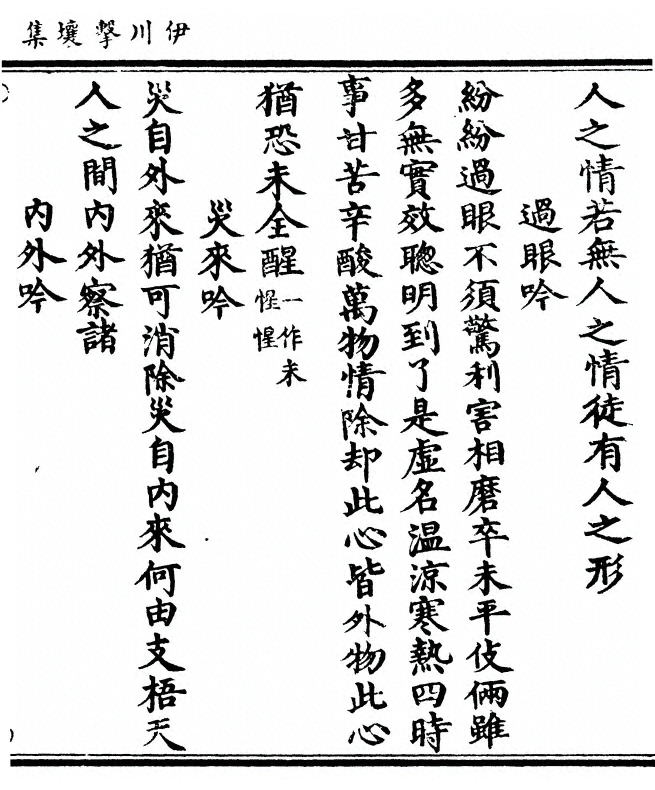 伊川擊壤集
人之情若無人之情徒有人之形
過眼吟
紛紛過眼不須驚利害相磨卒未平伎倆雖
多無實效聰明到了是虛名温涼寒熱四時
事甘苦辛酸萬物情除却此心皆外物此心
猶恐未全醒一作未惺惺
災來吟
災自外來猶可消除災自内來何由支梧天
人之間内外察諸
内外吟